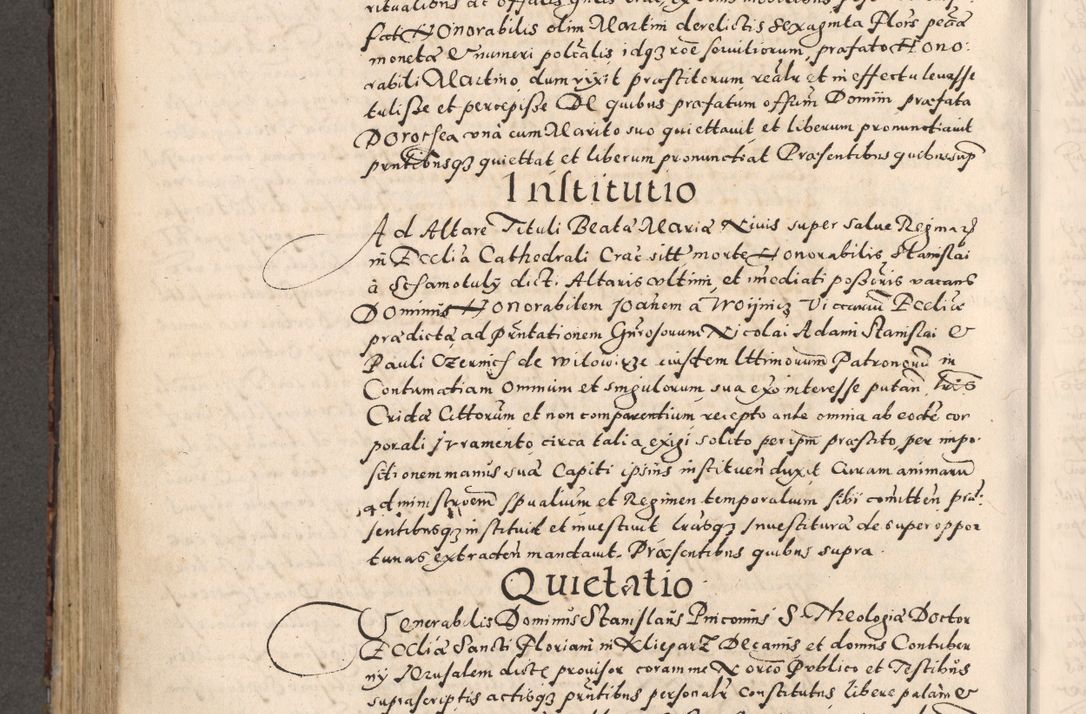 fati Honorabilis olim Martini derelictis sexaginta Flors pecā
monetæ & numeri polcalis idqz rōe serviliorum, præfato Hono-
rabili Martino dum vixit præstitorum realr et in effectu levasse
tulisse et percepisse De quibus præfatum offm Domini præfata
Dorothea vna cum Marito suo quiettavit et liberum pronunctiavit
prntibusqz quiettat et liberum pronunctiat Præsentibus quibus sup
Institutio
Ad Altare Tituli Beatæ Mariæ Nivis super salve Regina
in Ecclia Cathedrali Crac sitt morte Honorabilis Stanislai
a Schamotuly dict. Altaris vltimi, et imediati poss̄oris vacans
Dominus Honorabilem Joānem a Woijnicz Vicarium Ecclīæ
prædictæ ad Prntationem Gnrosorum Nicolai Adami Stanislai &
Pauli Czernich de Witowicze eiusdem lttimorum Patronorū in
Contumatiam Omnium et singulorum sua exo interesse putan lras
Cridæ Cittorum et non comparentium recepto ante omnia ab eodē cor
porali Jvramento circa talia exigi solito per ipm præstito, per impo-
sitionem manus suæ Capiti ipsius instituen duxit Curam animarū
administroem spualium et Regimen temporalium sibi comitten præ-
sentibusqz instituit et investivit lrasqz Investituræ de super oppor
tunas extraden mandavit. Præsentibus quibus supra.
Quietatio
Venerabilis Dominus Stanislaus Pinconius S. Theologiæ Doctor
Ecclīæ Sancti Floriani in Kleparz Decanus et domus Contuber
ny Jerusalem dictæ provisor coram me Norēo Publico et Testibus
suprascriptis actisqz prntibus personalr Constitutus libere palam &